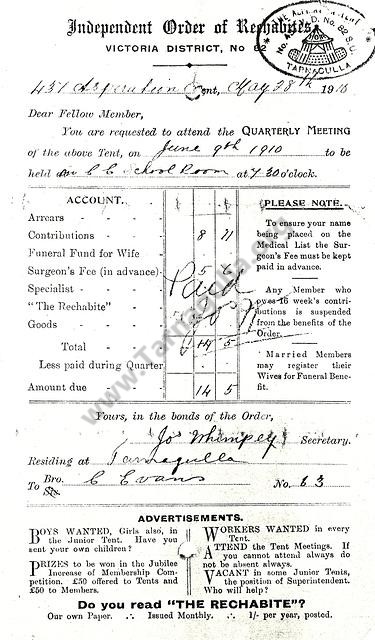 Independent Order of Rechabites
VICTORIA DISTRICT, No 82
No. 82 S.U.
TARNAGULLA
Tent, May 28th 1910
Dear Fellow Member,
You are requested to attend the QUARTERLY MEETING
of the above Tent, on June 9th 1910 to be
held School Room at 7.30 o'clock.
ACCOUNT.
Arrears
Contributions 8 11
Funeral Fund for Wife
Surgeon's Fee (in advance) 5
Specialist
"The Rechabite"
Goods
Total 14 5
Less paid during Quarter
Amount due 14 5
Paid
PLEASE NOTE.
To ensure your name
being placed on the
Medical List the Sur-
geon's Fee must be kept
paid in advance.
Any Member who
owes 16 week's contri-
butions is suspended
from the benefits of the
Order.
Married Members
may register their
Wives for Funeral Bene-
fit.
Yours, in the bonds of the Order,
Jos Whimpey Secretary.
Residing at Tarnagulla
To Bro. C Evans No. 63
ADVERTISEMENTS.
BOYS WANTED, Girls also, in
the Junior Tent. Have you
sent your own children?
PRIZES to be won in the Jubilee
Increase of Membership Com-
petition. £50 offered to Tents and
£50 to Members.
WORKERS WANTED in every
Tent.
ATTEND the Tent Meetings. If
you cannot attend always do
not be absent always.
VACANT in some Junior Tents,
the position of Superintendent.
Who will help?
Do you read "THE RECHABITE"?
Our own Paper. ∴ Issued Monthly. ∴ 1/- per year, posted.
www.Tarnagulla.org